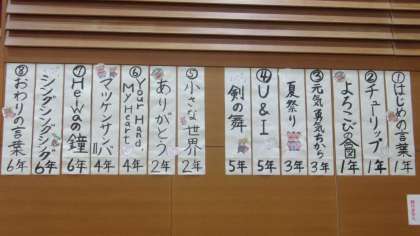 ①はじめの言葉 1年
②チューリップ 1年
よろこびの歌 1年
③元気勇気ちから 3年
夏祭り 3年
④U&I 5年
剣の舞 5年
⑤小さな世界 2年
ありがとう 2年
⑥Your Hand, My Heart 4年
マツケンサンバⅡ 4年
⑦Heiwaの鐘 6年
シングシングシング 6年
⑧おわりの言葉 6年